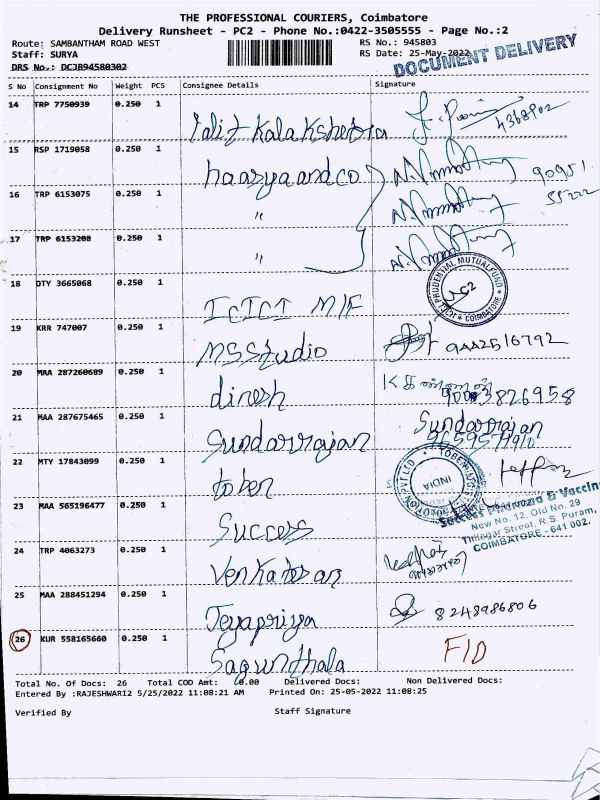 THE PROFESSIONAL COURIERS, Coimbatore
Delivery Runsheet - PC2 - Phone No.:0422-3505555 - Page No.:2
Route: SAMBANTHAM ROAD WEST RS No.: 945803
Staff: SURYA RS Date: 25-May-2022
DRS No.: DCJB94580302 DOCUMENT DELIVERY
S No Consignment No Weight PCS Consignee Details Signature
14 TRP 7750939 0.250 1
lalit kala kshetra 4368902
15 RSP 1719058 0.250 1
haasya and co 90951
16 TRP 6153075 0.250 1 55222
"
17 TRP 6153208 0.250 1
"
18 DTY 3665068 0.250 1
ICICI M/F ICICI PRUDENTIAL MUTUAL FUND COIMBATORE
19 KRR 747007 0.250 1
MS Studio 9442516792
20 MAA 287260689 0.250 1
dinesh 9003826958
21 MAA 287675465 0.250 1
Sundarrajan Sundarrajan
22 MTY 17843099 0.250 1
token INDIA
23 MAA 565196477 0.250 1
Success New No. 12, Old No. 29
Street, R.S. Puram,
COIMBATORE - 641 002.
24 TRP 4063273 0.250 1
Venkatesan
25 MAA 288451294 0.250 1
Jeyapriya 8248986806
26 KUR 558165660 0.250 1
Sagunthala F/D
Total No. Of Docs: 26 Total COD Amt: 0.00 Delivered Docs: Non Delivered Docs:
Entered By :RAJESHWARI2 5/25/2022 11:08:21 AM Printed On: 25-05-2022 11:08:25
Verified By Staff Signature